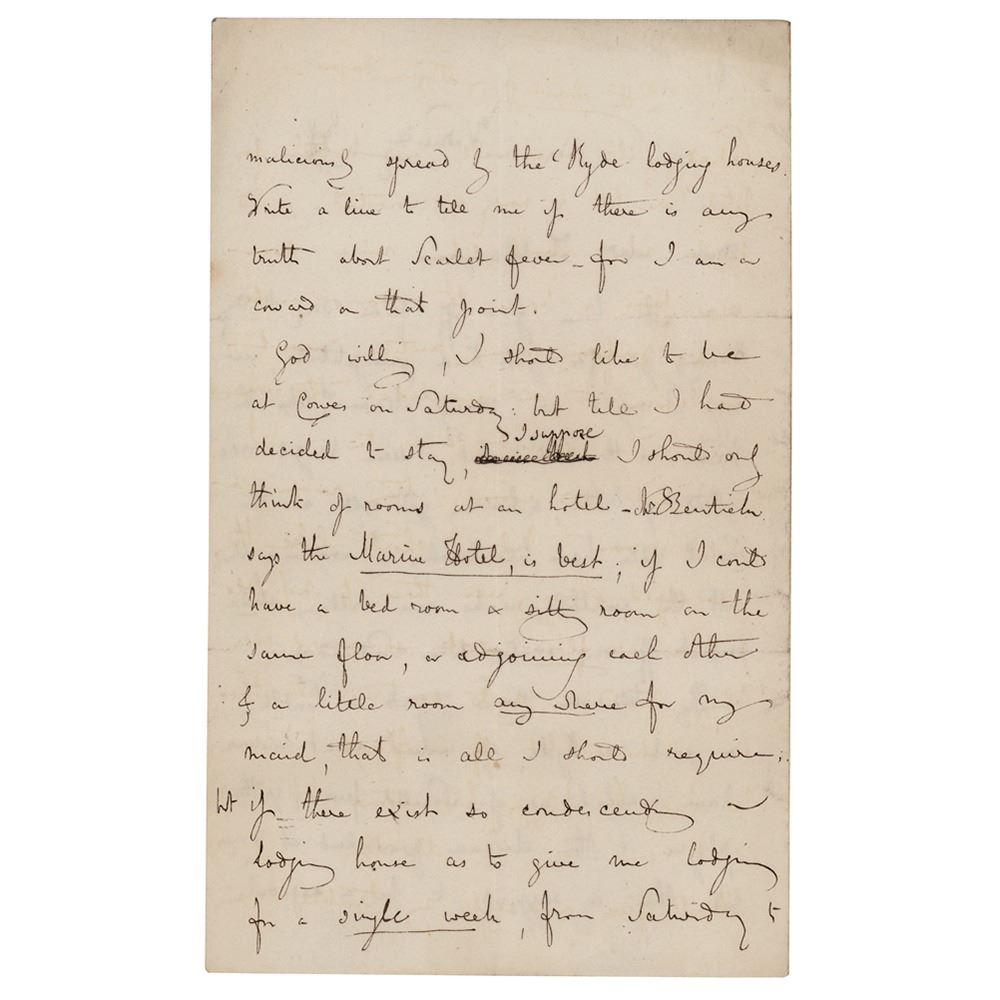 maliciously spread by the Ryde lodging houses.
Write a line to tell me if there is any
truth about Scarlet fever – for I am a
coward on that point.
God willing, I should like to be
at Cowes on Saturday: but till I had
I suppose
decided to stay, I should only
think of rooms at an hotel –
says the Marine Hotel, is best; if I could
have a bed room & sitting room on the
same floor, or adjoining each other
& a little room any where for my
maid, that is all I should require;
but if there exist so condescending a
Lodging house as to give me lodging
for a single week, from Saturday to